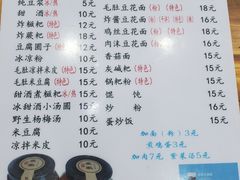 纯豆浆 冰/熱 5元
甜酒 冰/熱 10元
毛肚豆花面(特色) 18元
炸糍粑(特色) 15元
炸酱豆花面(粉)(特色) 16元
炸糍粑 15元
鸡丝豆花面(粉)(特色) 16元
豆腐圆子(特色) 12元
肉沫豆花面(粉) 16元
冰凉粉 10元
香菇面 15元
毛肚凉拌米皮(特色) 16元
灰碱粑(特色) 15元
毛肚米豆腐(特色) 16元
锅粑粉(特色) 15元
甜酒煮糍粑 冰/熱 15元
馄饨 15元
冰甜酒小汤圆 15元
炒饭 15元
野生杨梅汤 10元
蛋炒饭 15元
米豆腐 10元
加面(粉)3元
凉拌米皮 15元
煎鸡蛋3元
加肉7元 紫菜汤5元